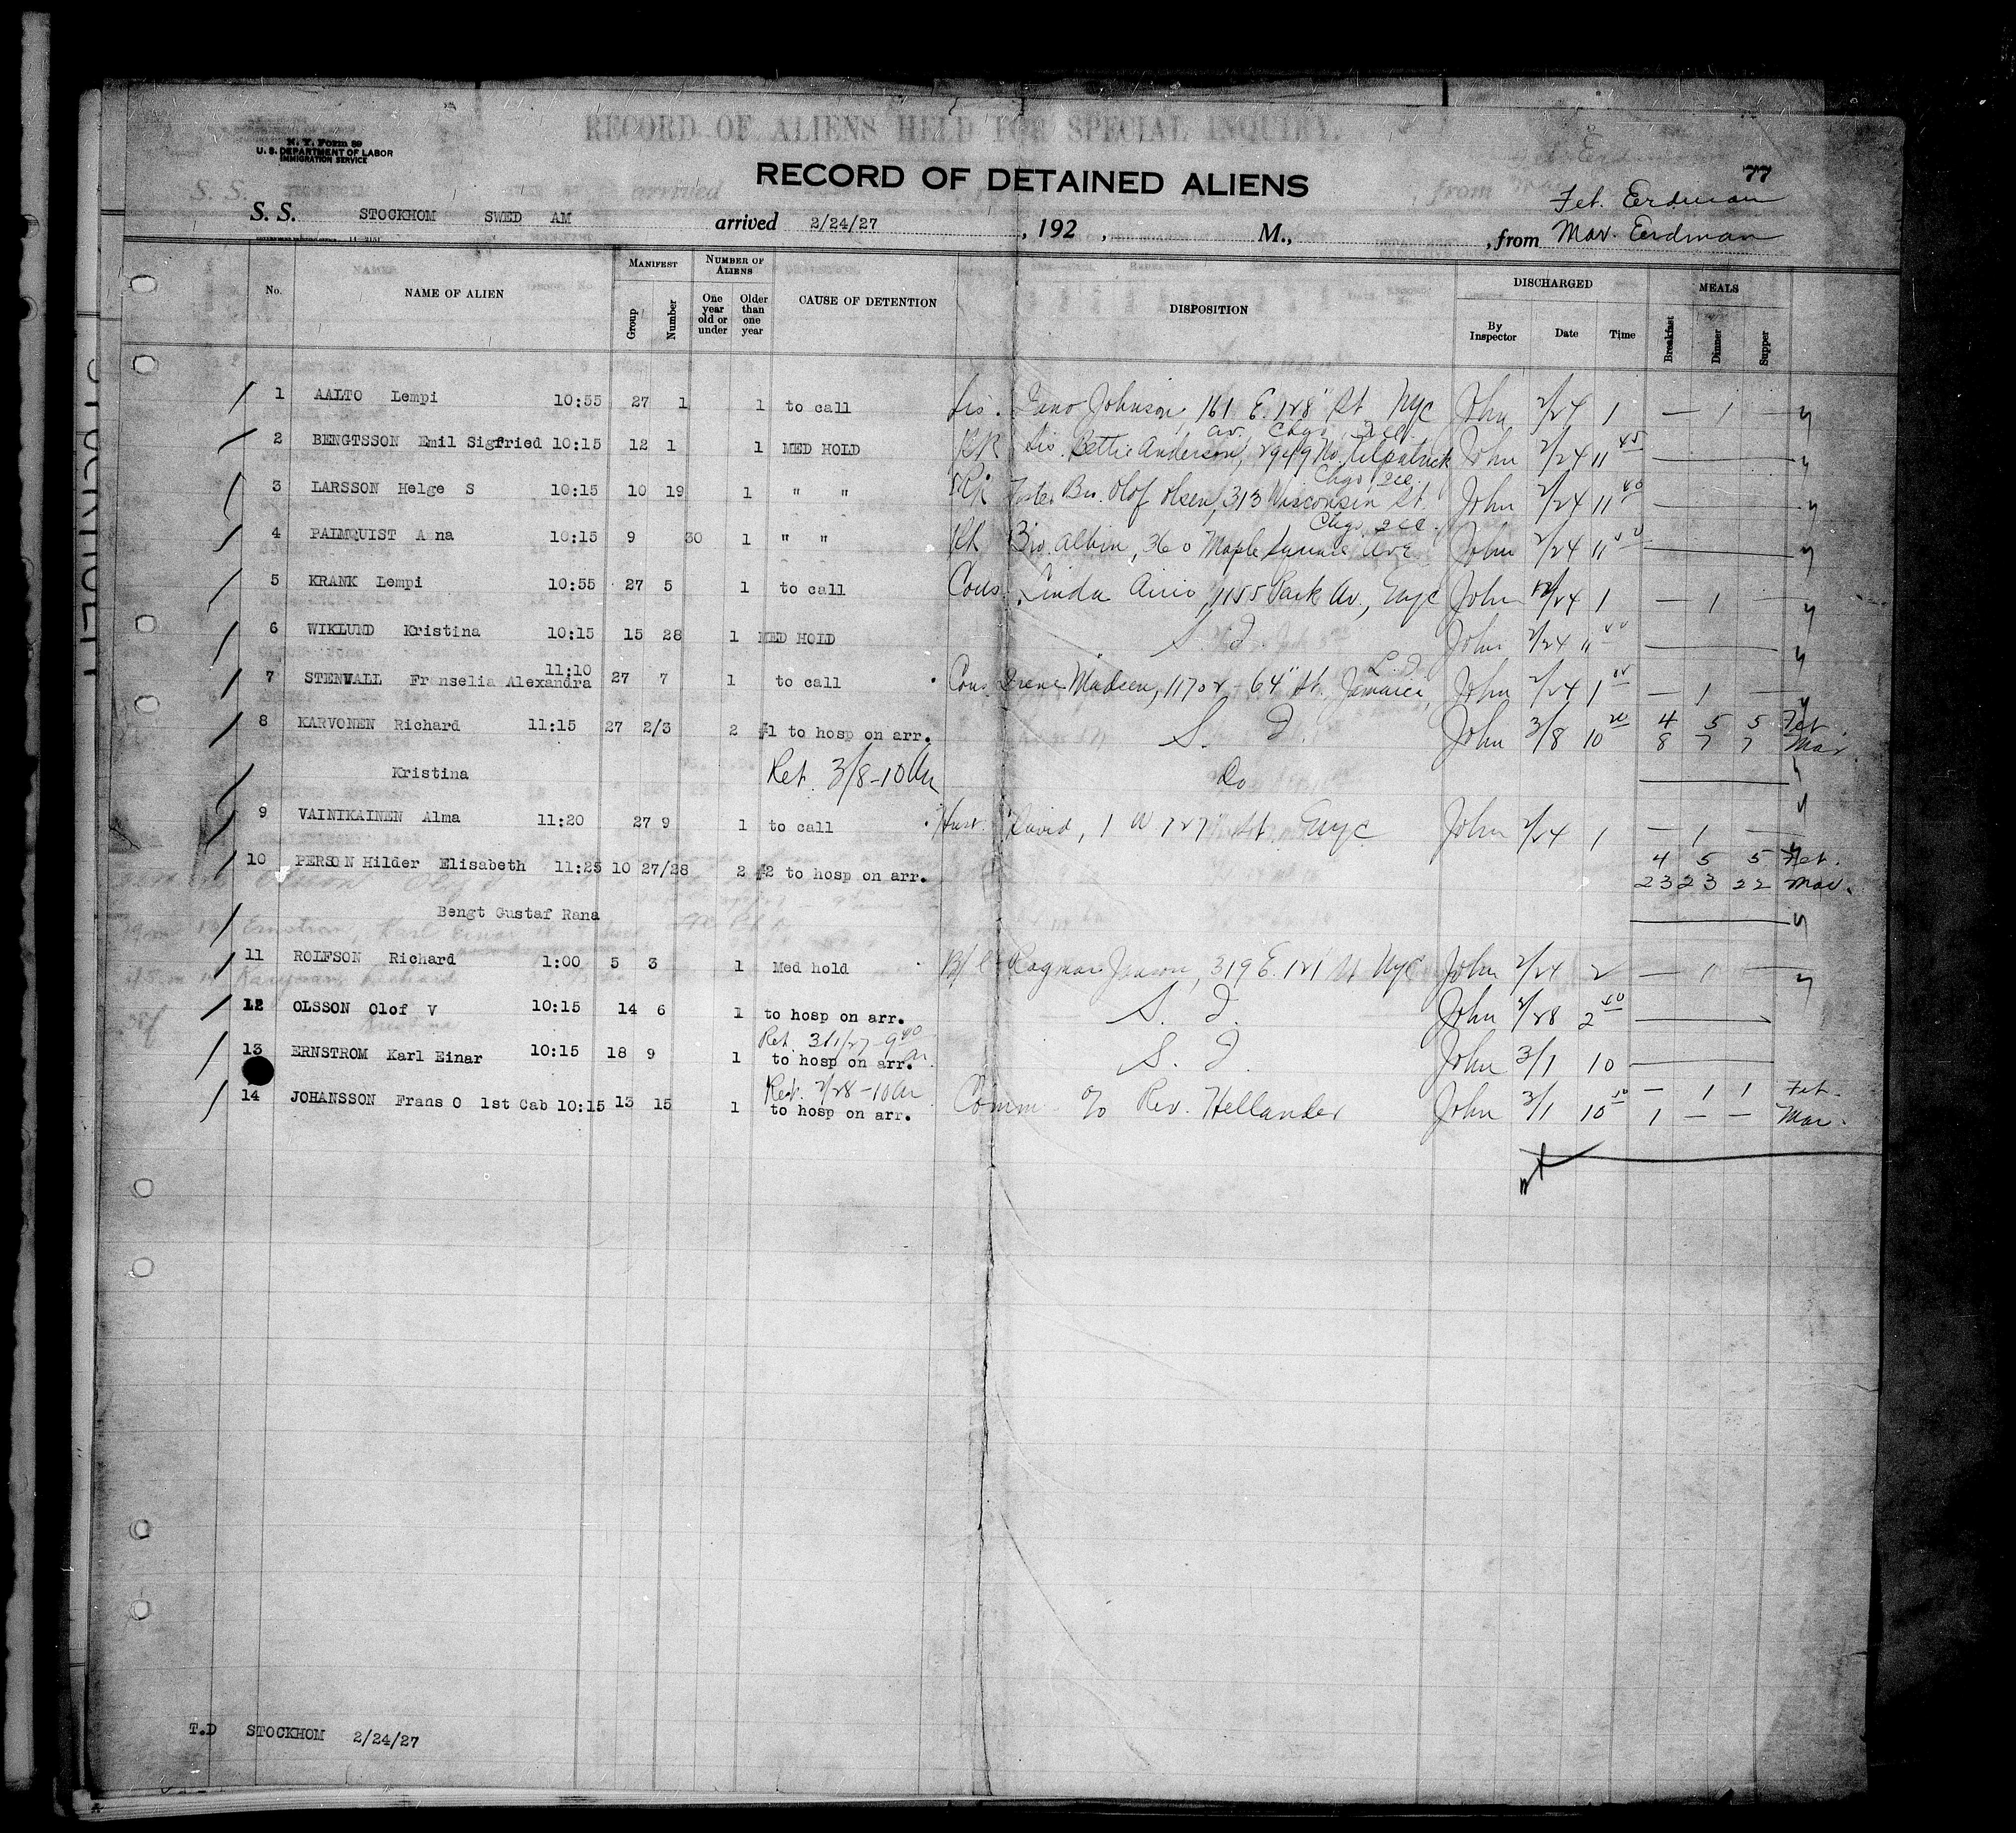 RECORD OF ALIENS HELD FOR SPECIAL INQUIRY.
N. Y. Form 89
U. S. DEPARTMENT OF LABOR
IMMIGRATION SERVICE
RECORD OF DETAINED ALIENS 77
Feb. Erdman
S. S. STOCKHOM SWED AM arrived 2/24/27 , 192 , M., , from Mar. Erdman
No. NAME OF ALIEN MANIFEST Group Number NUMBER OF ALIENS One year old or under Older than one year CAUSE OF DETENTION DISPOSITION DISCHARGED By Inspector Date Time MEALS Breakfast Dinner Supper
1 AALTO Lempi 10:55 27 1 1 to call Sis. Johnson, 161 E. 128" St. NYC John 2/24 1 — 1 —
av. Chgo, Ill.
2 BENGTSSON Emil Sigfried 10:15 12 1 1 MED HOLD RR Sis. Bettie Anderson, 2949 No. Kilpatrick John 2/24 11 45
Chgo, Ill.
3 LARSSON Helge S 10:15 10 19 1 " " RR Foster Bro. Olof Olsen, 313 Wisconsin St. John 2/24 11 40
Chgo, Ill.
4 PALMQUIST A na 10:15 9 30 1 " " RR Bro. Albin, 360 Maple Ave John 2/24 11
5 KRANK Lempi 10:55 27 5 1 to call Cous. Linda 1155 Park Av., NYC John 2/24 1 — 1 —
6 WIKLUND Kristina 10:15 15 28 1 MED HOLD S. I. John 2/24 11 40
11:10 L. I.
7 STENWALL Franselia Alexandra 27 7 1 to call Cous. Irene Madsen, 11702 - 64" St. Jamaica, John 2/24 1 — 1 —
8 KARVONEN Richard 11:15 27 2/3 2 #1 to hosp on arr. S. I. John 3/8 10 20 4 5 5 Feb.
8 7 7 Mar.
Kristina Ret. 3/8-10 AM Do
9 VAINIKAINEN Alma 11:20 27 9 1 to call Husb. David, 1 W 127" St. NYC John 2/24 1 — 1 —
10 PERSON Hilder Elisabeth 11:25 10 27/28 2 #2 to hosp on arr. 4 5 5 Feb.
23 23 22 Mar.
Bengt Gustaf Rana
11 ROLFSON Richard 1:00 5 3 1 Med hold Ragnar 319 E. 121 St NYC John 2/24 2 — 1 —
12 OLSSON Olof V 10:15 14 6 1 to hosp on arr. S. I. John 2/28 2 40
Ret. 3/1/27-9 40 AM
13 ERNSTROM Karl Einar 10:15 18 9 1 to hosp on arr. S. I. John 3/1 10
Ret. 2/28-10 AM
14 JOHANSSON Frans O 1st Cab 10:15 13 15 1 to hosp on arr. Comm. c/o Rev. Hellander John 3/1 10 — 1 1 Feb.
1 — — Mar.
T.D STOCKHOM 2/24/27